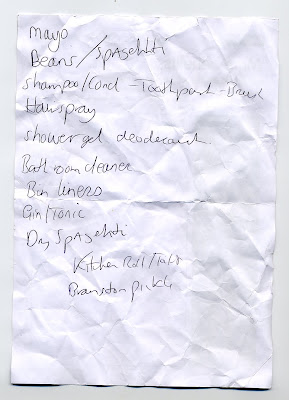 mayo
Beans/Spagehtti
shampoo/Cond - Toothpast - Brush
Hairspray
shower gel deoderant
Bathroom cleaner
Bin liners
Gin/Tonic
Dry Spagehtti
Kitchen Roll/
Branston pickle